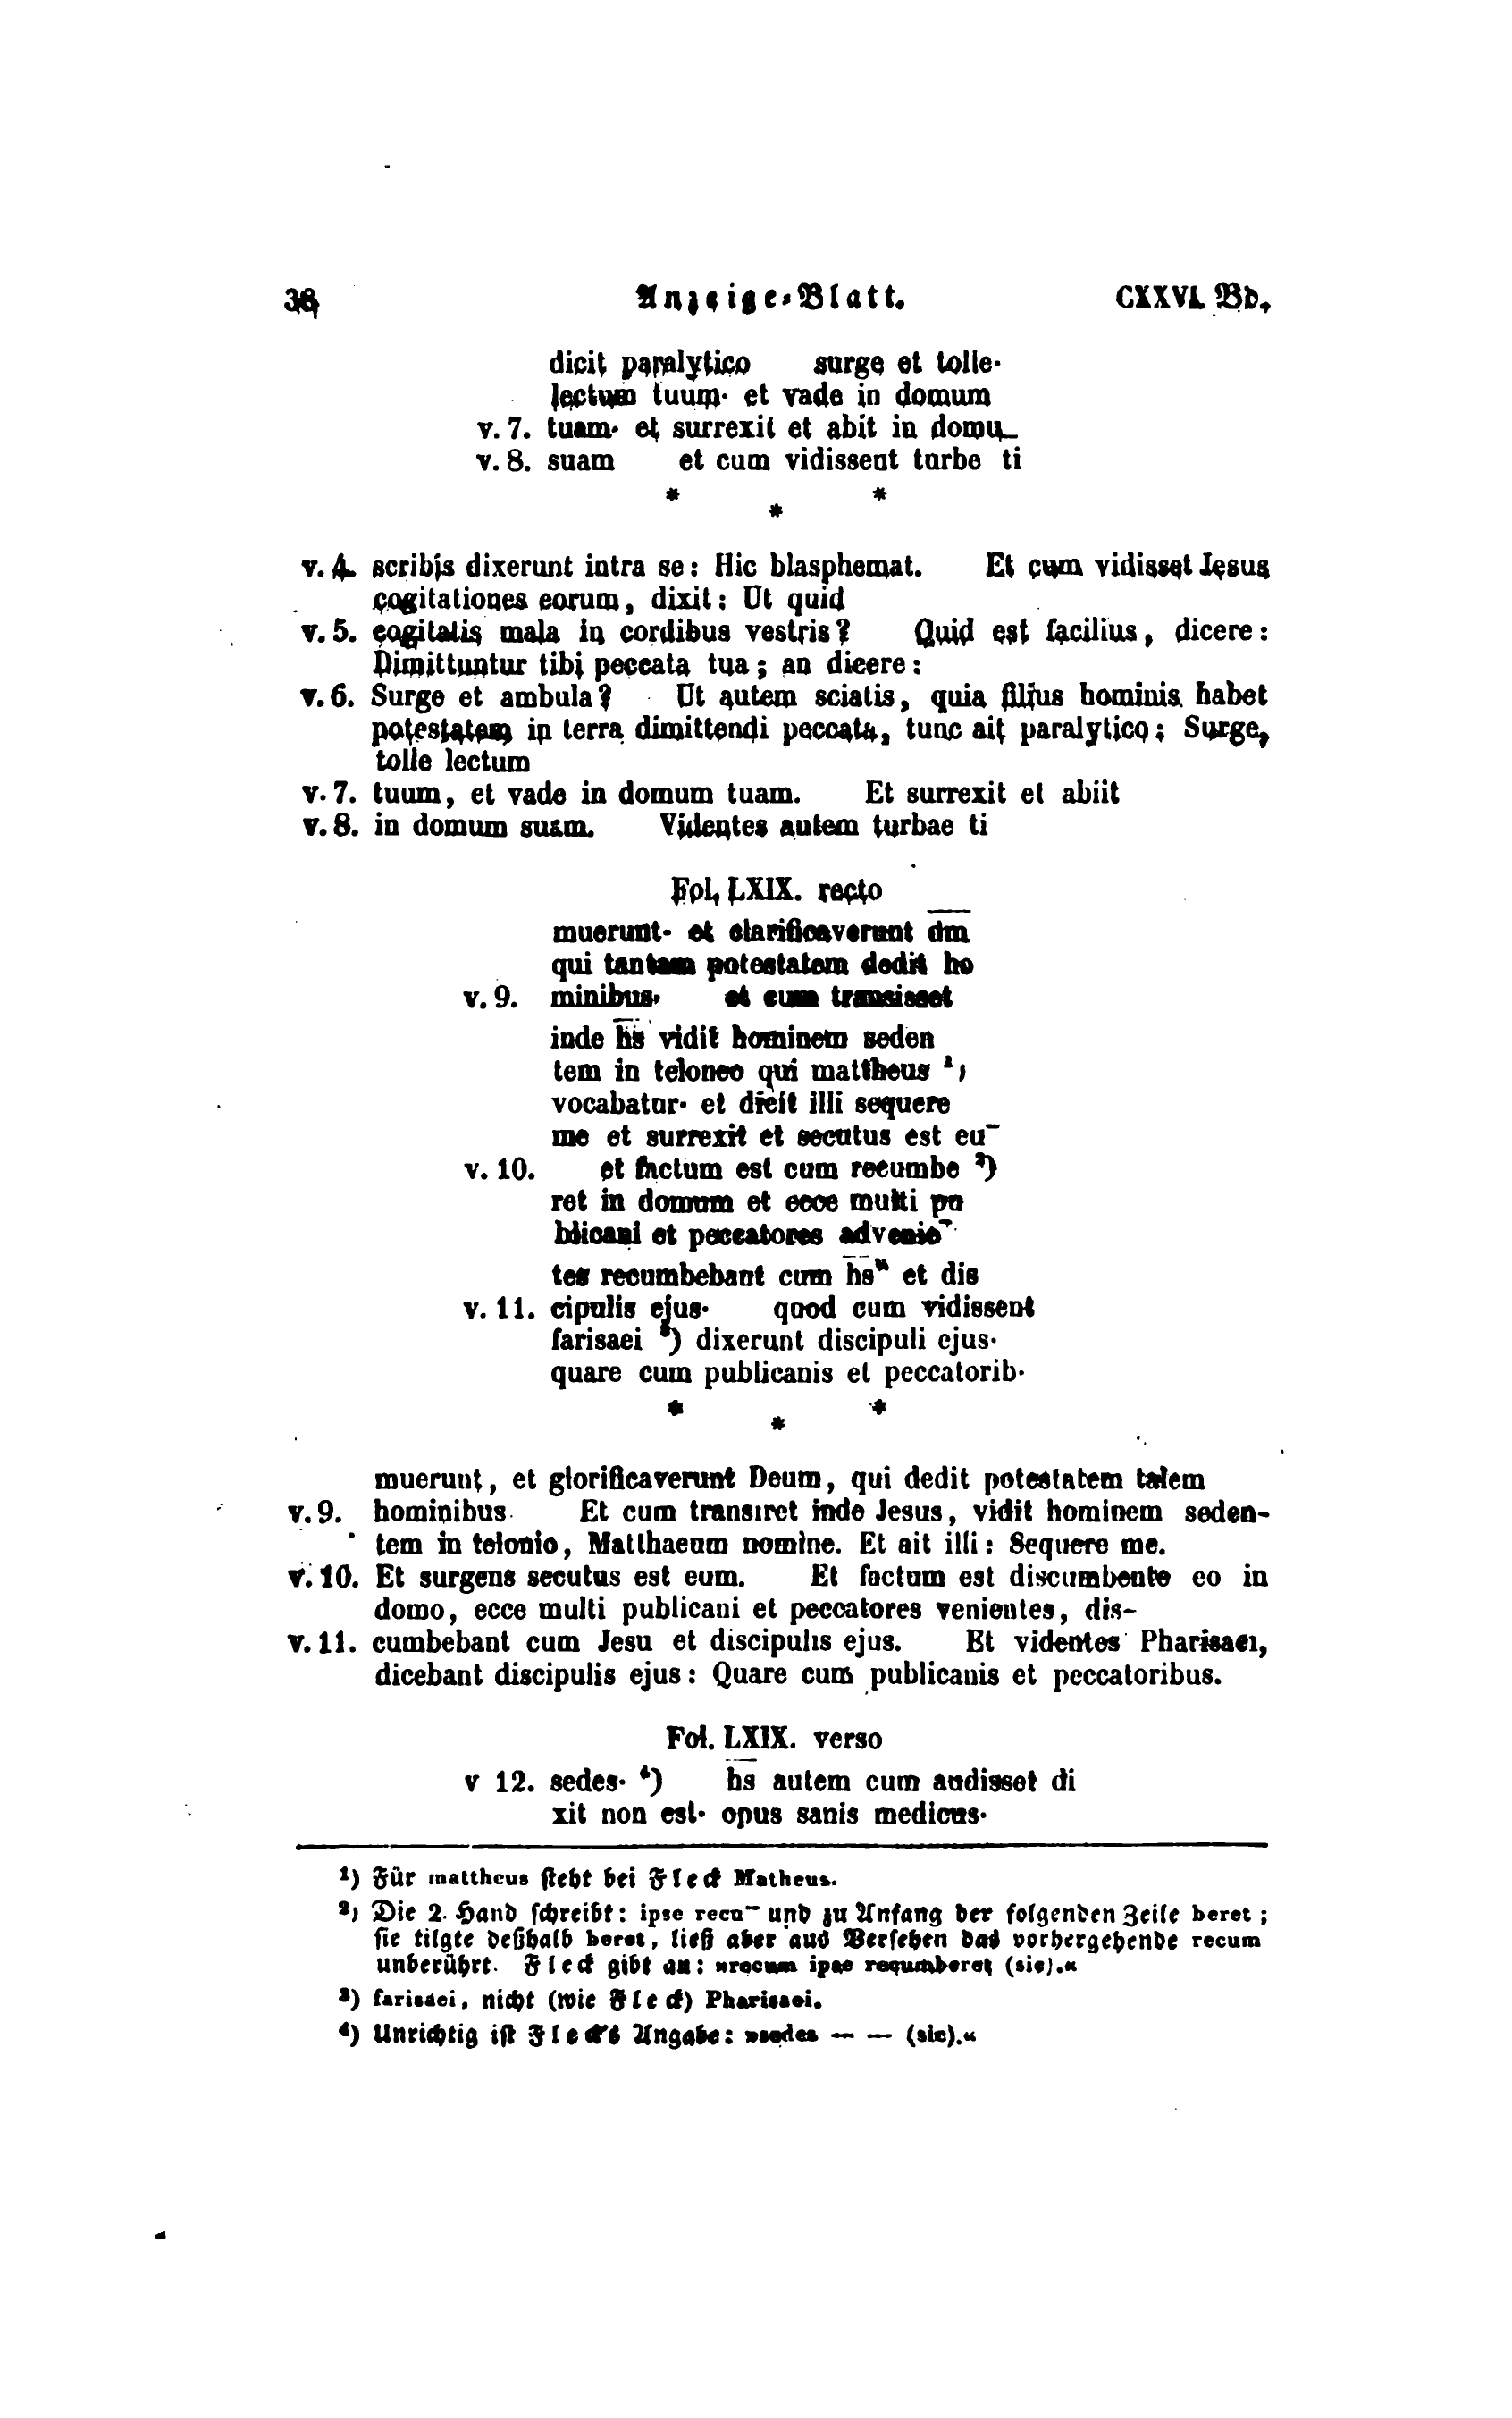 38 Anzeige-Blatt. CXXVI. Bd.
dicit paralytico surge et tolle·
lectum tuum· et vade in domum
v. 7. tuam· et surrexit et abit in domu_
v. 8. suam et cum vidissent turbe ti
* * *
v. 4. scribis dixerunt intra se: Hic blasphemat. Et cum vidisset Iesus
cogitationes eorum, dixit: Ut quid
v. 5. cogitatis mala in cordibus vestris? Quid est facilius, dicere:
Dimittuntur tibi peccata tua; an dicere:
v. 6. Surge et ambula? Ut autem sciatis, quia filius hominis habet
potestatem in terra dimittendi peccata, tunc ait paralytico: Surge,
tolle lectum
v. 7. tuum, et vade in domum tuam. Et surrexit et abiit
v. 8. in domum suam. Videntes autem turbae ti
Fol. LXIX. recto
muerunt· et clarificaverunt d̅m̅
qui tantam potestatem dedit ho
v. 9. minibus· et cum transisset
inde h̅s̅ vidit hominem seden
tem in teloneo qui mattheus ¹)
vocabatur· et dicit illi sequere
me et surrexit et secutus est eu¯
v. 10. et factum est cum recumbe ²)
ret in domum et ecce multi pu
blicani et peccatores advenie¯
tes recumbebant cum h̅s̅ᵘ et dis
v. 11. cipulis ejus· quod cum vidissent
farisaei ³) dixerunt discipuli ejus·
quare cum publicanis et peccatorib·
* * *
muerunt, et glorificaverunt Deum, qui dedit potestatem talem
v. 9. hominibus. Et cum transiret inde Jesus, vidit hominem seden-
tem in telonio, Matthaeum nomine. Et ait illi: Sequere me.
v. 10. Et surgens secutus est eum. Et factum est discumbente eo in
domo, ecce multi publicani et peccatores venientes, dis-
v. 11. cumbebant cum Jesu et discipulis ejus. Et videntes Pharisaei,
dicebant discipulis ejus: Quare cum publicanis et peccatoribus.
Fol. LXIX. verso
v 12. sedes· ⁴) h̅s̅ autem cum audisset di
xit non est· opus sanis medicus·
¹) Für mattheus steht bei Fleck Matheus.
²) Die 2. Hand schreibt: ipse recu¯ und zu Anfang der folgenden Zeile beret;
sie tilgte deßhalb beret, ließ aber aus Versehen das vorhergehende recum
unberührt. Fleck gibt an: »recum ipse recumberet (sic).«
³) farisaei, nicht (wie Fleck) Pharisaei.
⁴) Unrichtig ist Fleck's Angabe: »sedes — — (sic).«